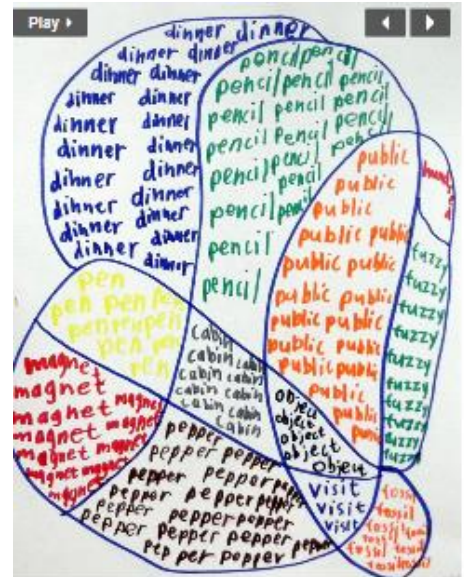 Play
dinner dinner
dinner dinner
dinner dinner
dinner dinner
dinner dinner
dinner dinner
dinner dinner
dinner dinner
dinner dinner
dinner dinner
dinner dinner
pencil pencil
pencil pencil pencil
pencil pencil pencil
pencil pencil pencil
pencil pencil
pencil
pencil pencil
pencil
pencil
public
public
public
public public
public public
public public
public public
public public
public public
public
public
fuzzy
fuzzy
fuzzy
fuzzy
fuzzy
fuzzy
fuzzy
fuzzy
fuzzy
pen
pen pen pen
pen pen pen
pen pen
pen
cabin
cabin cabin
cabin cabin
cabin cabin
cabin cabin
cabin
magnet
magnet
magnet magnet
magnet magnet
magnet magnet
magnet magnet
magnet
object
object
object
object
object
pepper
pepper pepper
pepper pepper pepper
pepper pepper pepper
pepper pepper pepper
pepper pepper pepper pepper
pepper pepper pepper
visit
visit
visit
fossil
fossil
fossil
fossil
fossil